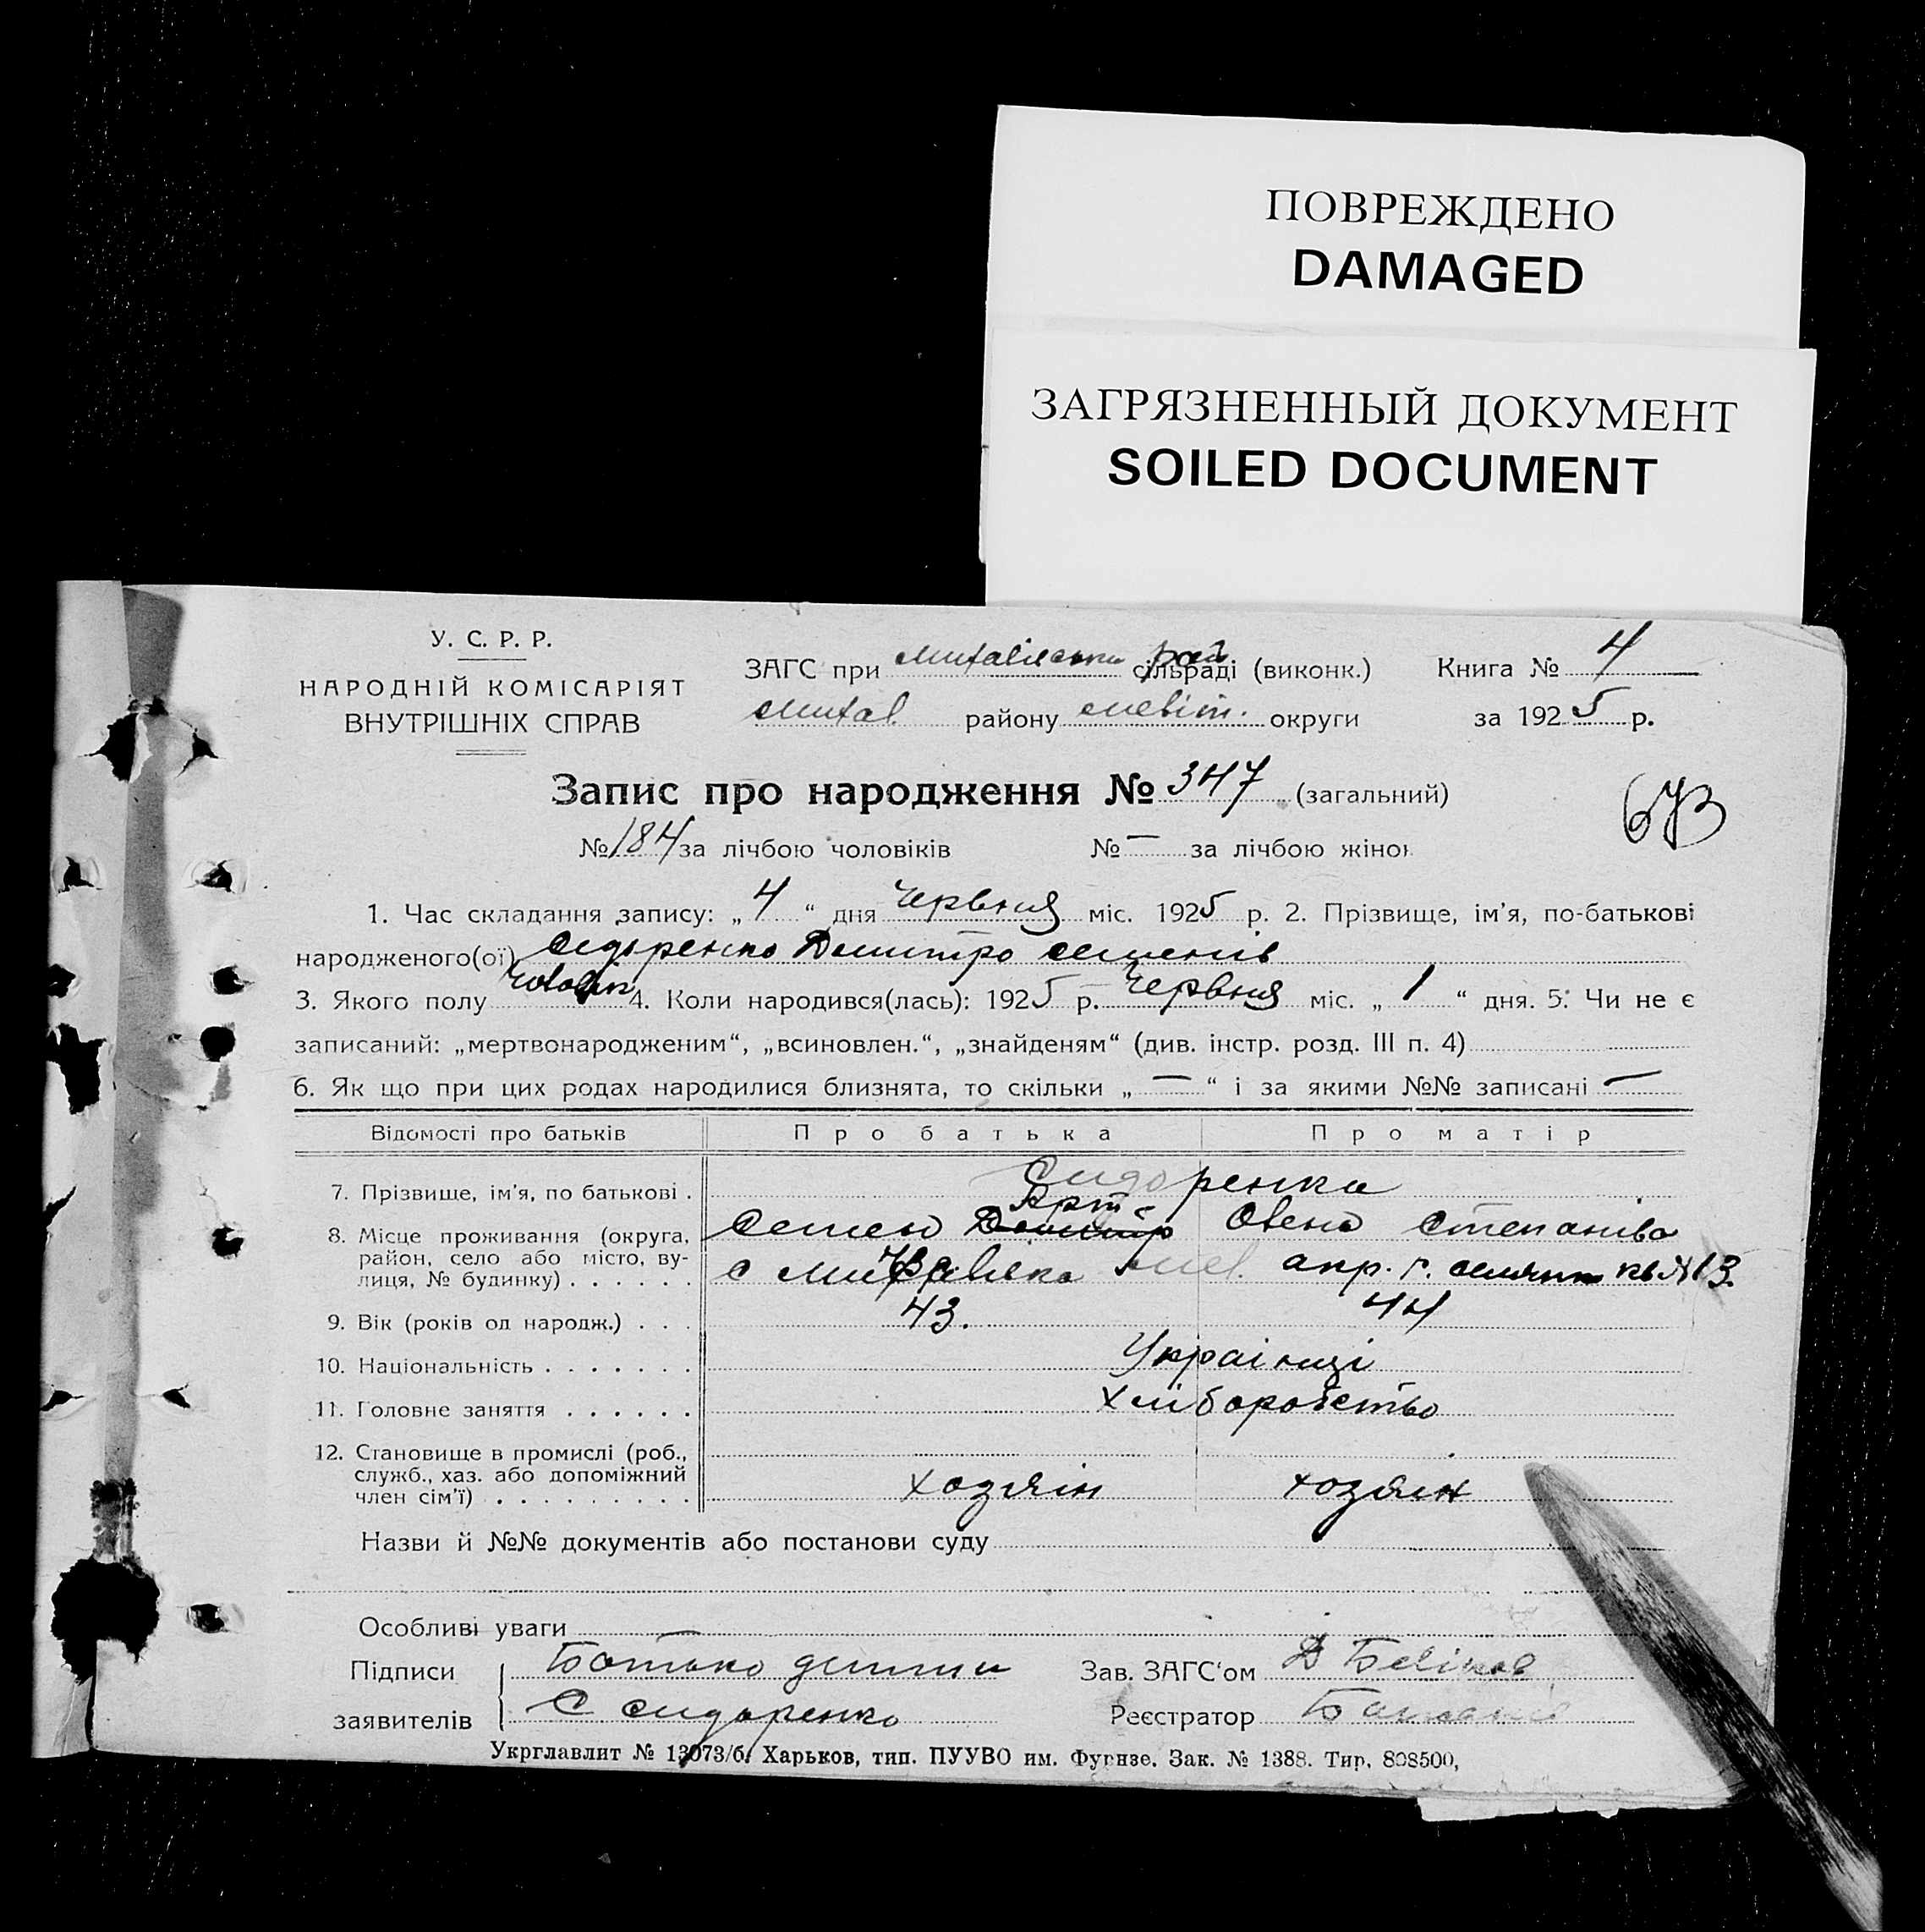 ПОВРЕЖДЕНО
DAMAGED
ЗАГРЯЗНЕННЫЙ ДОКУМЕНТ
SOILED DOCUMENT
У. С. Р. Р.
НАРОДНІЙ КОМІСАРІЯТ
ВНУТРІШНІХ СПРАВ
ЗАГС при сільраді (виконк.)
Книга № 4
района району мелітп. округи
за 1925 р.
Запис про народження № 347 (загальний)
673
№ 184 за лічбою чоловіків № — за лічбою жінок
1. Час складання запису: „4“ дня червня міс. 1925 р. 2. Прізвище, ім’я, по-батькові
народженого(ої) Сидоренко Дмитро Семенів
3. Якого полу чоловіч 4. Коли народився(лась): 1925 р. червня міс. „1“ дня. 5. Чи не є
записаний: „мертвонародженим“, „всиновлен.“, „знайденям“ (див. інстр. розд. III п. 4)
6. Як що при цих родах народилися близнята, то скільки „—“ і за якими №№ записані —
Відомості про батьків Про батька Про матір
7. Прізвище, ім’я, по батькові . Сидоренки
Арт
8. Місце проживання (округа, Семен Дмитр Овена Степанівa
район, село або місто, ву-
лиця, № будинку) . . . . . . с Михавівка мел. окр. кв № 13
9. Вік (років од народж.) . . . 43. 44
10. Національність . . . . . . . Українці
11. Головне заняття . . . . . . хліборобство
12. Становище в промислі (роб.,
служб., хаз. або допоміжний
член сім’ї) . . . . . . . . . хозяін хозяін
Назви й №№ документів або постанови суду
Особливі уваги
Підписи Батько дитини
Зав. ЗАГС‘ом
заявителів С Сидоренко
Реєстратор
Укрглавлит № 13073/б. Харьков, тип. ПУУВО им. Фрунзе. Зак. № 1388. Тир. 808500,